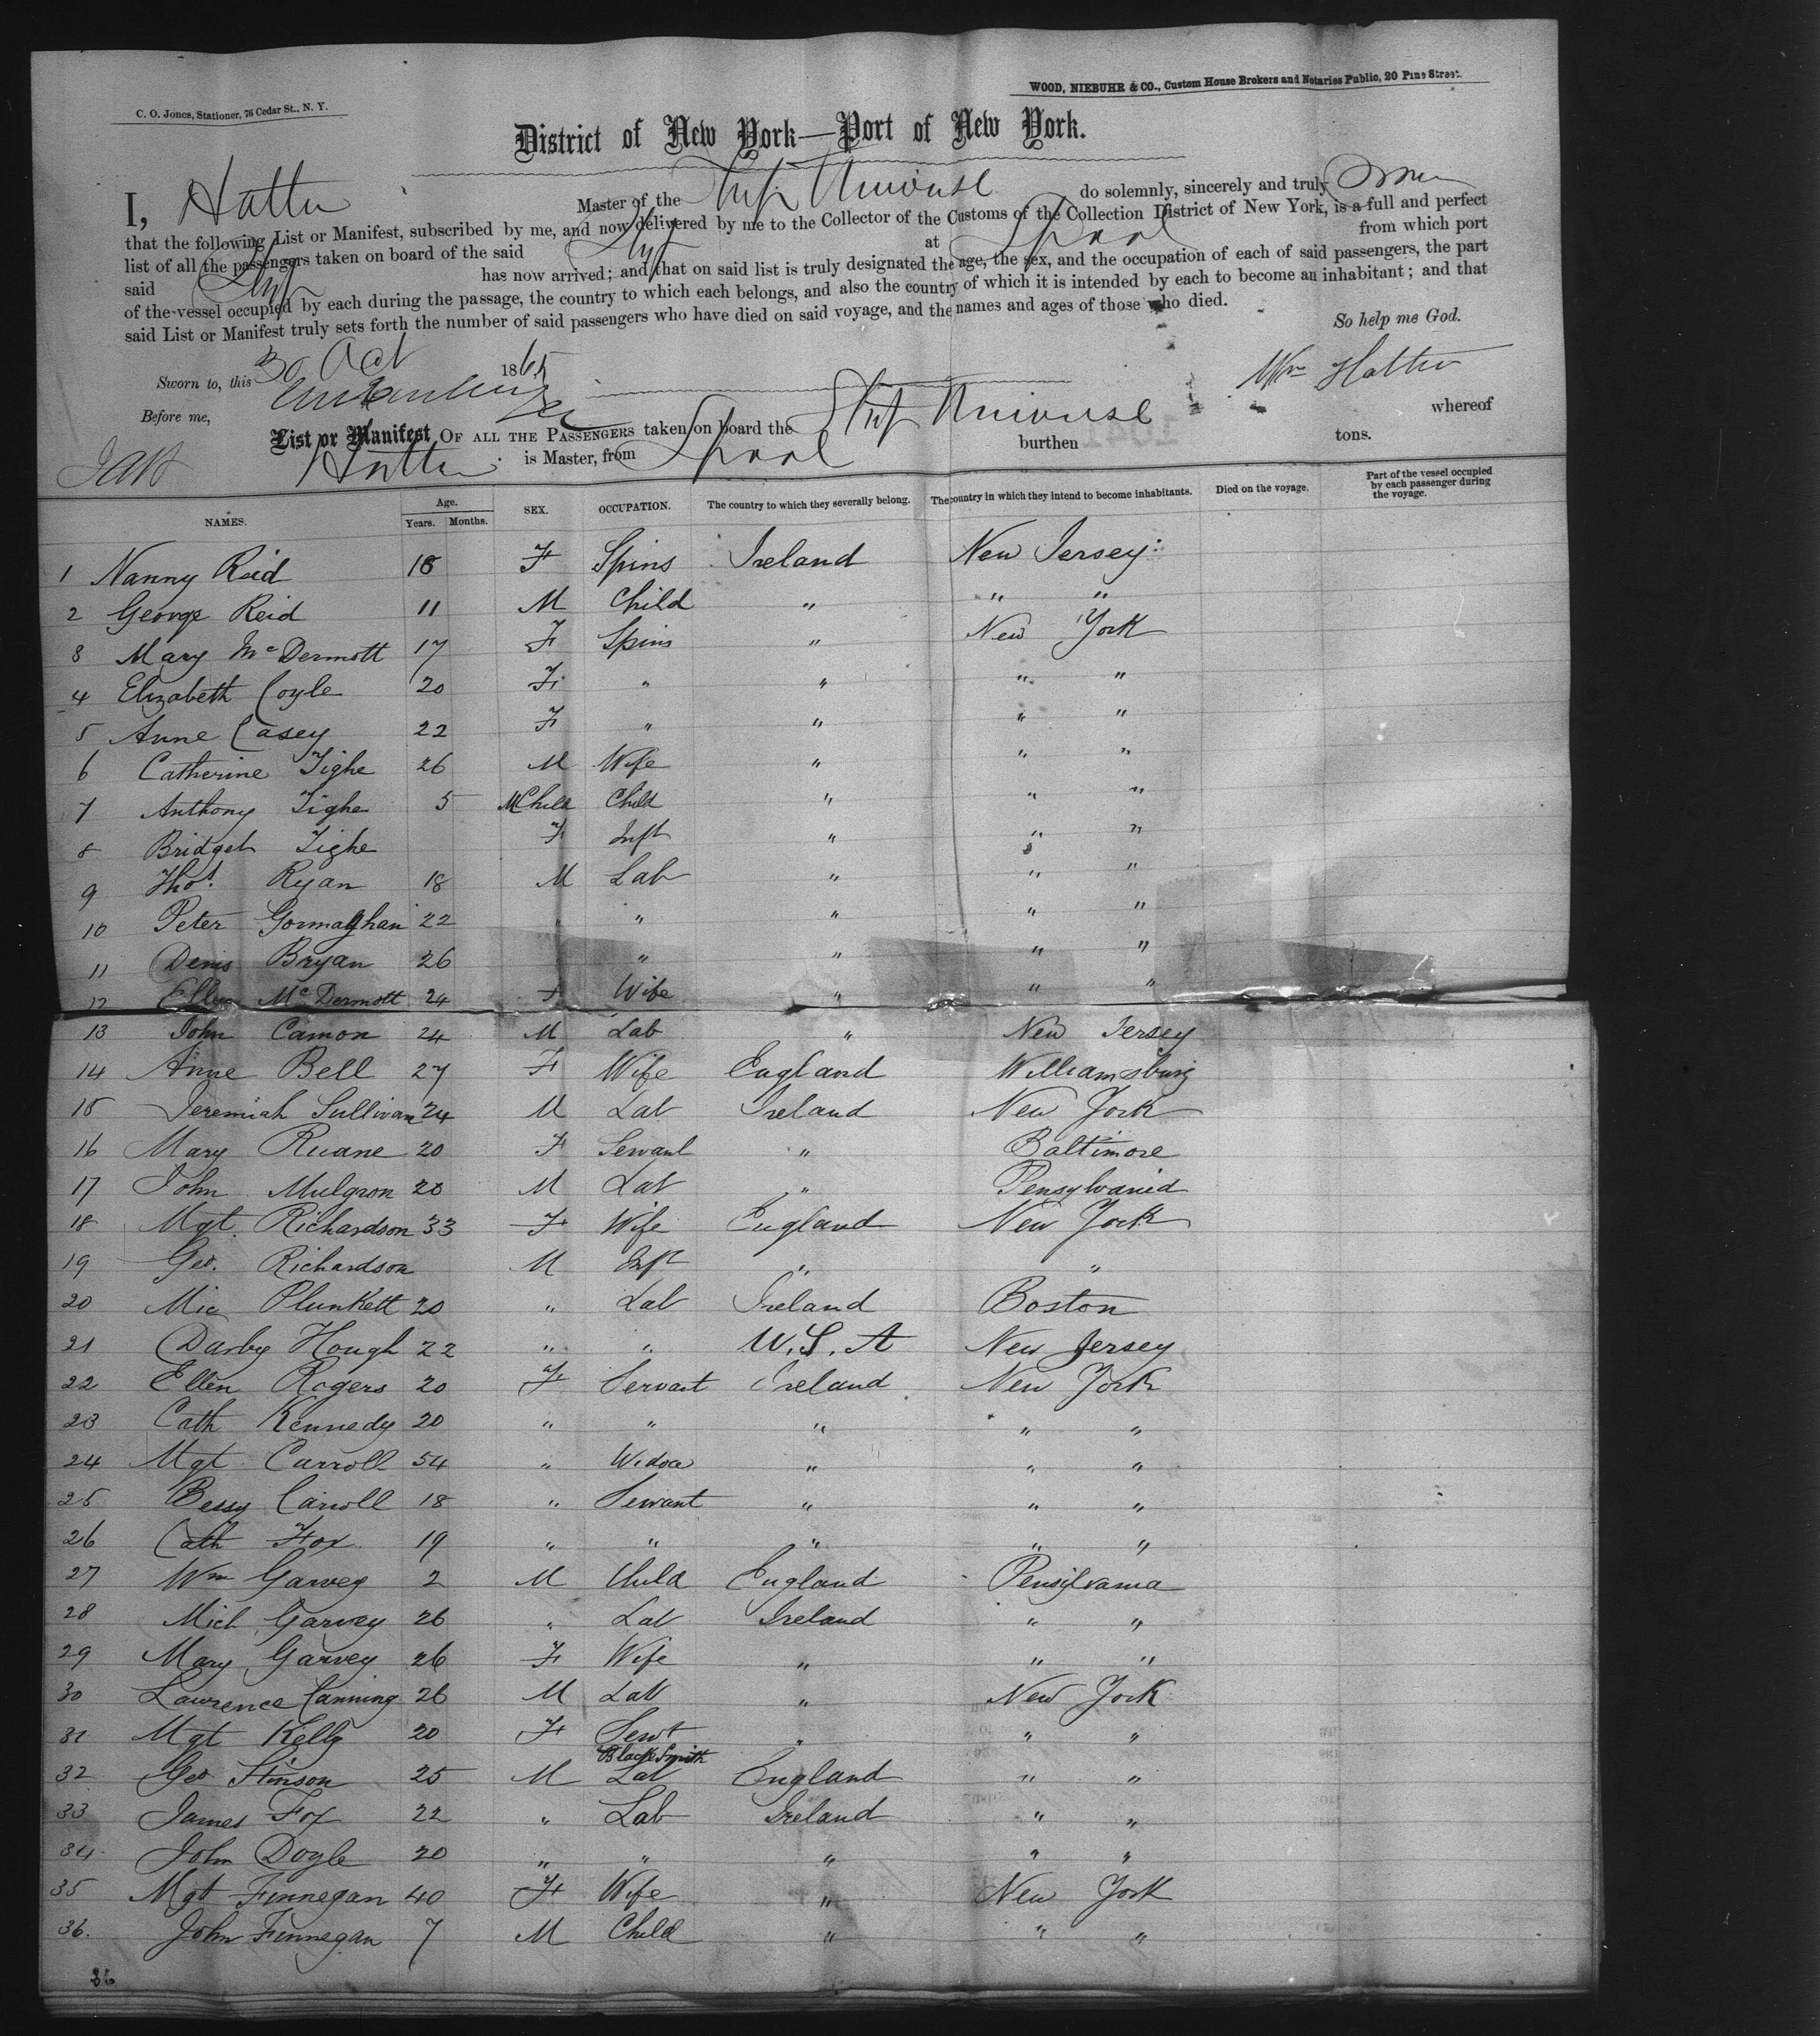 C. O. Jones, Stationer, 76 Cedar St., N. Y.
WOOD, NIEBUHR & CO., Custom House Brokers and Notaries Public, 20 Pine Street.
District of New York—Port of New York.
I, Hatten Master of the Ship do solemnly, sincerely and truly
that the following List or Manifest, subscribed by me, and now delivered by me to the Collector of the Customs of the Collection District of New York, is a full and perfect
list of all the passengers taken on board of the said Ship at Lpool from which port
said Ship has now arrived; and that on said list is truly designated the age, the sex, and the occupation of each of said passengers, the part
of the vessel occupied by each during the passage, the country to which each belongs, and also the country of which it is intended by each to become an inhabitant; and that
said List or Manifest truly sets forth the number of said passengers who have died on said voyage, and the names and ages of those who died.
So help me God.
Sworn to, this 30 Oct 1865
Wm Hatten
Before me,
List or Manifest OF ALL THE PASSENGERS taken on board the Ship whereof
Hatten is Master, from Lpool burthen tons.
NAMES. Age. Years. Months. SEX. OCCUPATION. The country to which they severally belong. The country in which they intend to become inhabitants. Died on the voyage. Part of the vessel occupied by each passenger during the voyage.
1 Nanny Reid 18 F Spins Ireland New Jersey
2 George Reid 11 M Child " " "
3 Mary McDermott 17 F Spins " New York
4 Elizabeth Coyle 20 F " " " "
5 Anne Casey 22 F " " " "
6 Catherine Tighe 26 M Wife " " "
7 Anthony Tighe 5 M Child Child " " "
8 Bridget Tighe F Inft " " "
9 Thos. Ryan 18 M Lab " " "
10 Peter Gormaghan 22 " " " " "
11 Denis Bryan 26 " " " "
12 Ellen McDermott 24 F Wife " " "
13 John Camon 24 M Lab " New Jersey
14 Anne Bell 27 F Wife England Williamsburg
15 Jeremiah Sullivan 24 M Lab Ireland New York
16 Mary Ruane 20 F Servant " Baltimore
17 John Mulgron 20 M Lab " Pensylvania
18 Mgt. Richardson 33 F Wife England New York
19 Geo. Richardson M Inft " "
20 Mic Plunkett 20 " Lab Ireland Boston
21 Darby Hough 22 " " U.S.A New Jersey
22 Ellen Rogers 20 F Servant Ireland New York
23 Cath Kennedy 20 " " " " "
24 Mgt Carroll 54 " Widow " " "
25 Bessy Carroll 18 " Servant " " "
26 Cath Fox 19 " " " " "
27 Wm Garvey 2 M Child England Pensylvania
28 Mich Garvey 26 " Lab Ireland " "
29 Mary Garvey 26 F Wife " " "
30 Lawrence Canning 26 M Lab " New York
31 Mgt Kelly 20 F Servt " " "
32 Geo Stinson 25 M BlackSmith Lab England " "
33 James Fox 22 " Lab Ireland " "
34 John Doyle 20 " " " " "
35 Mgt Finnegan 40 F Wife " New York
36. John Finnegan 7 M Child " " "
36